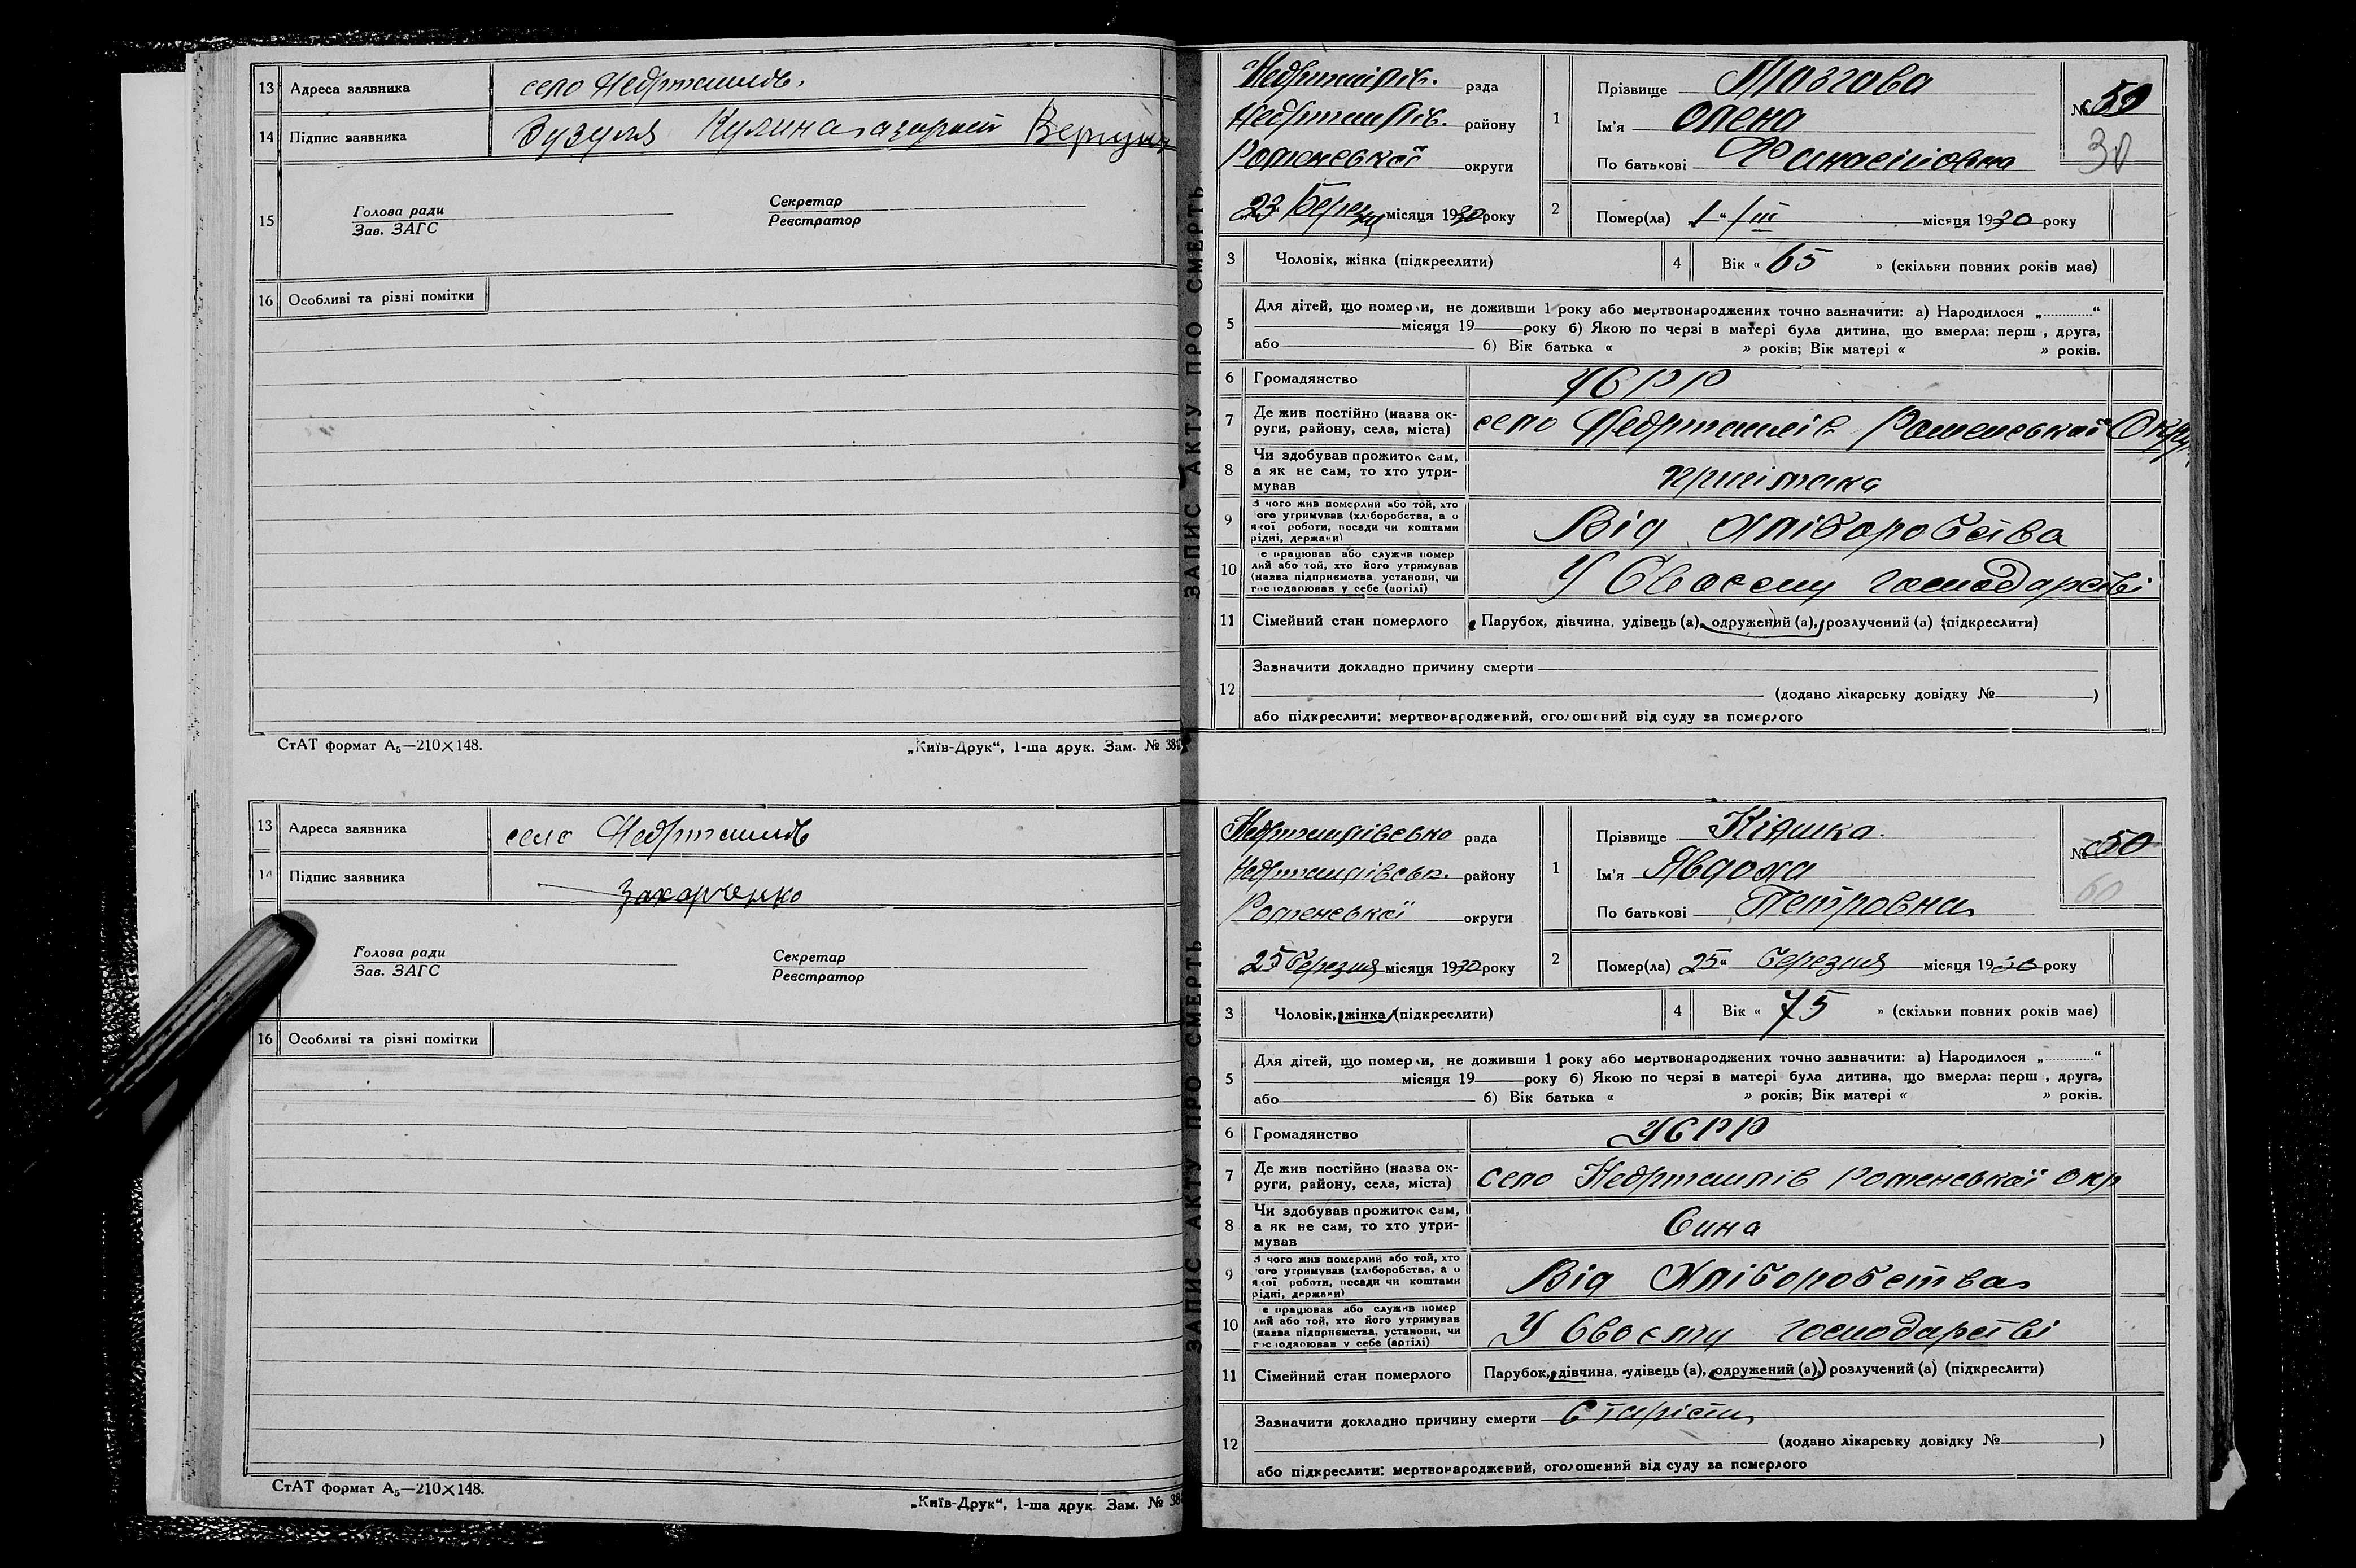 13 Адреса заявника село Недригайлів.
14 Підпис заявника Зузуля Кулина
15 Голова ради Секретар
Зав. ЗАГС Реєстратор
16 Особливі та різні помітки
СтАТ формат А5—210×148. „Київ-Друк“, 1-ша друк. Зам. № 38
13 Адреса заявника село Недригайлів
14 Підпис заявника Захарченко
Голова ради Секретар
Зав. ЗАГС Реєстратор
16 Особливі та різні помітки
СтАТ формат А5—210×148. „Київ-Друк“, 1-ша друк. Зам. № 38
ЗАПИС АКТУ ПРО СМЕРТЬ
Недригайлів. рада
Недригайлів. району
Роменської округи
23 Березня місяця 1930 року
1 Прізвище Мозгова
Ім'я Олена
По батькові
№ 50
30
2 Помер(ла) 1“ /III місяця 1930 року
3 Чоловік, жінка (підкреслити) 4 Вік « 65 » (скільки повних років мав)
5 Для дітей, що померли, не доживши 1 року або мертвонароджених точно зазначити: а) Народилося „............“
місяця 19 року б) Якою по черзі в матері була дитина, що вмерла: перш , друга,
або б) Вік батька « » років; Вік матері « » років.
6 Громадянство УСРР
7 Де жив постійно (назва округи, району, села, міста) село Недригайлів Роменської Округ.
8 Чи здобував прожиток сам,
а як не сам, то хто утримував
9 З чого жив померлий або той, хто
ого утримував (хліборобства, а о
якої роботи, посади чи коштами
рідні, держави) Від Хліборобства
10 е працював або служив помер
лий або той, хто його утримував
(назва підприємства, установи, чи
господарював у себе (артілі) У Своєму господарстві
11 Сімейний стан померлого Парубок, дівчина, удівець (а), одружений (а), розлучений (а) (підкреслити)
12 Зазначити докладно причину смерти
(додано лікарську довідку № )
або підкреслити: мертвонароджений, оголошений від суду за померлого
ЗАПИС АКТУ ПРО СМЕРТЬ
Недригайлівська рада
Недригайлівськ. району
Роменської округи
25 Березня місяця 1930 року
1 Прізвище Кіяшка.
Ім'я Явдоха
По батькові Петровна
№ 50
60
2 Помер(ла) 25“ березня місяця 1930 року
3 Чоловік, жінка (підкреслити) 4 Вік « 75 » (скільки повних років мав)
5 Для дітей, що померли, не доживши 1 року або мертвонароджених точно зазначити: а) Народилося „............“
місяця 19 року б) Якою по черзі в матері була дитина, що вмерла: перш , друга,
або б) Вік батька « » років; Вік матері « » років.
6 Громадянство УСРР
7 Де жив постійно (назва округи, району, села, міста) село Недригайлів Роменської окр
8 Чи здобував прожиток сам,
а як не сам, то хто утримував Сина
9 З чого жив померлий або той, хто
ого утримував (хліборобства, а о
якої роботи, посади чи коштами
рідні, держави) Від Хліборобства
10 е працював або служив помер
лий або той, хто його утримував
(назва підприємства, установи, чи
господарював у себе (артілі) У Своєму господарстві
11 Сімейний стан померлого Парубок, дівчина, удівець (а), одружений (а), розлучений (а) (підкреслити)
12 Зазначити докладно причину смерти Старість
(додано лікарську довідку № )
або підкреслити: мертвонароджений, оголошений від суду за померлого